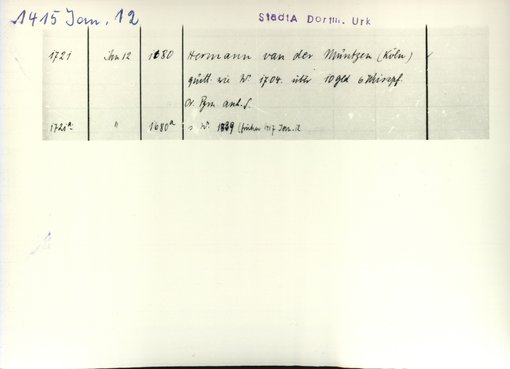 1415 Jan. 12
StadtA Dortm. Urk
1721 Jan 12 1680 Hermann van der Müntzen (Köln)
quitt. wie Nr 1704. über 10 gld 6
Or. Pgm. anh. S.
1721a " 1680a s. Nr. (früher 1417 Jan. 2